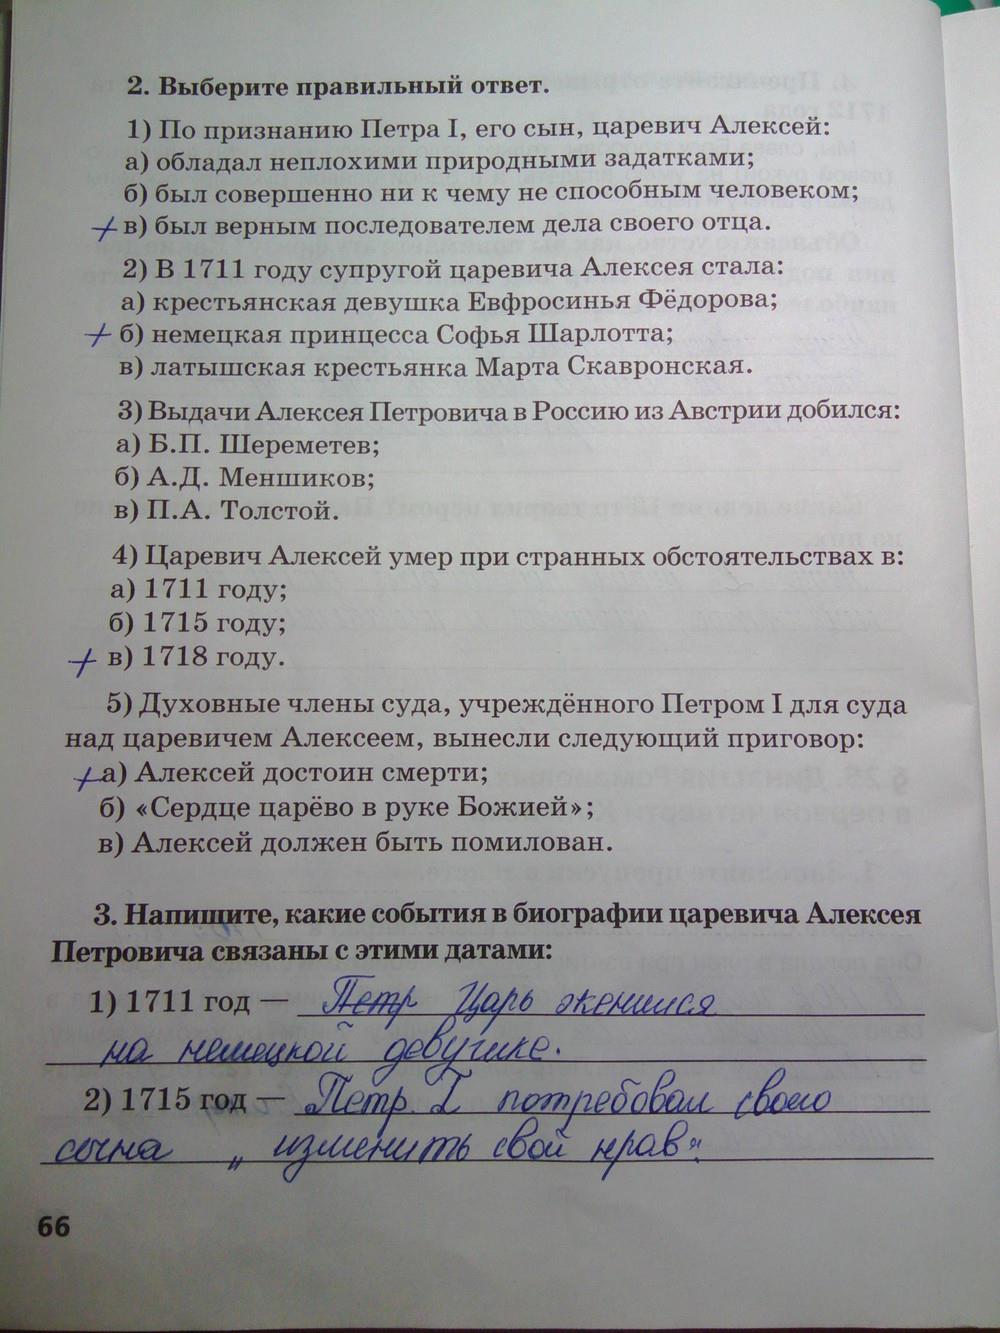 2. Выберите правильный ответ.
1) По признанию Петра I, его сын, царевич Алексей:
а) обладал неплохими природными задатками;
б) был совершенно ни к чему не способным человеком;
+ в) был верным последователем дела своего отца.
2) В 1711 году супругой царевича Алексея стала:
а) крестьянская девушка Евфросинья Фёдорова;
+ б) немецкая принцесса Софья Шарлотта;
в) латышская крестьянка Марта Скавронская.
3) Выдачи Алексея Петровича в Россию из Австрии добился:
а) Б.П. Шереметев;
б) А.Д. Меншиков;
в) П.А. Толстой.
4) Царевич Алексей умер при странных обстоятельствах в:
а) 1711 году;
б) 1715 году;
+ в) 1718 году.
5) Духовные члены суда, учреждённого Петром I для суда
над царевичем Алексеем, вынесли следующий приговор:
+ а) Алексей достоин смерти;
б) «Сердце царёво в руке Божией»;
в) Алексей должен быть помилован.
3. Напишите, какие события в биографии царевича Алексея
Петровича связаны с этими датами:
1) 1711 год — Петр Царь женился
на немецкой девушке.
2) 1715 год — Петр I потребовал своего
сына „изменить свой нрав".
66